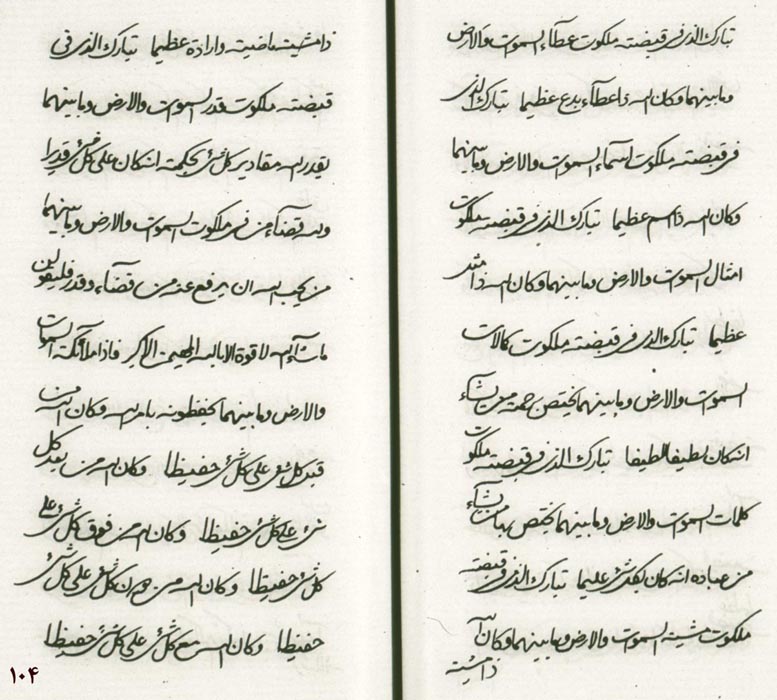 تبارك الذي في قبضته ملكوت عطآء السموات والارض
وما بينهما وكان الله ذا عطآء بدع عظيما تبارك الذي
في قبضته ملكوت اسمآء السموات والارض وما بينهما
وكان الله ذا اسم عظيما تبارك الذي في قبضته ملكوت
امثال السموات والارض وما بينهما وكان الله ذا مثل
عظيما تبارك الذي في قبضته ملكوت كمالات
السموات والارض وما بينهما يختص برحمته من يشآء
انه كان لطيفا لطيفا تبارك الذي في قبضته ملكوت
كلمات السموات والارض وما بينهما يختص بها من يشآء
من عباده انه كان بكل شئ عليما تبارك الذي في قبضته
ملكوت مشية السموات والارض وما بينهما وكان الله
ذا مشية
ذا مشية ماضية وارادة عظيما تبارك الذي في
قبضته ملكوت قدر السموات والارض وما بينهما
يقدر الله مقادير كل شئ بحكمته انه كان على كل شئ قديرا
ولله قضآء من في ملكوت السموات والارض وما بينهما
من يحب الله ان يرفع عنه من قضآء وقدر فليقولن
ما شآء الله لا قوة الا بالله المهيمن فاذا ملآئكة السموات
والارض وما بينهما يحفظونه بامر الله وكان الله من
قبل كل شئ على كل شئ حفيظا وكان الله من بعد كل
شئ على كل شئ حفيظا وكان الله من فوق كل شئ على
كل شئ حفيظا وكان الله من دون كل شئ على كل شئ
حفيظا وكان الله مع كل شئ على كل شئ حفيظا
١٠٤